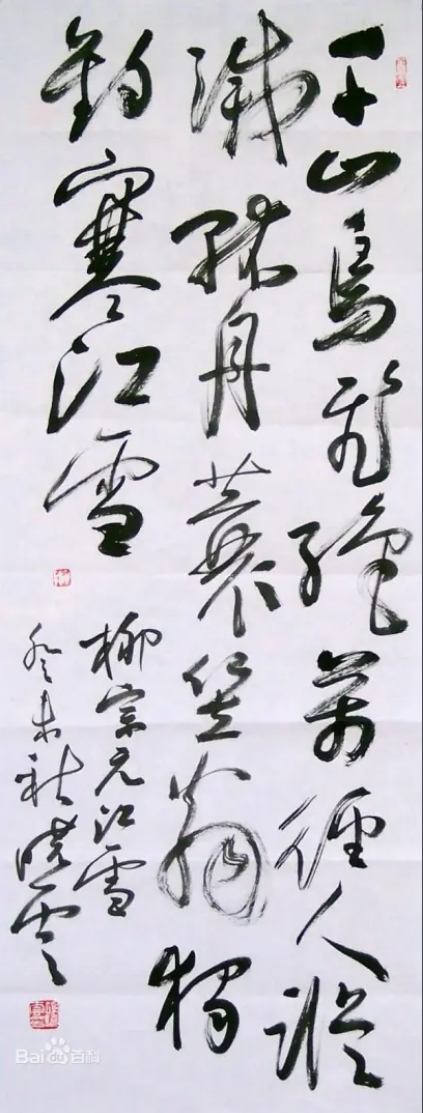 千山鳥飛絕萬徑人蹤
滅孤舟蓑笠翁獨
釣寒江雪
柳宗元江雪
癸未秋曉雲
Bai百科